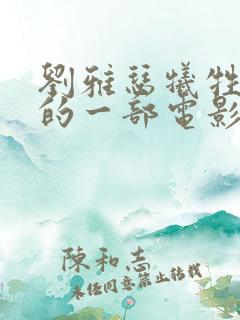 劉雅瑟犧牲
的一部電影
陳和志
未經同意禁止轉載